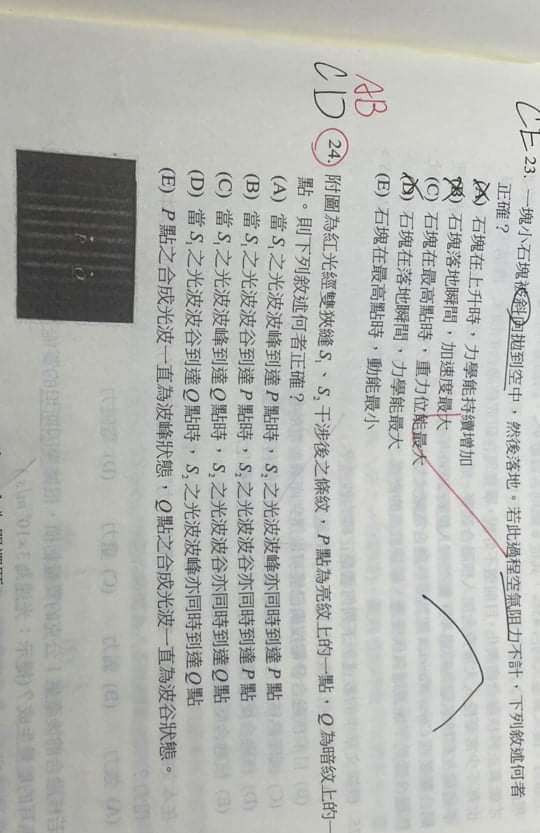 CE 23. 一塊小石塊被斜向拋到空中，然後落地。若此過程空氣阻力不計，下列敘述何者
正確？
(A) 石塊在上升時，力學能持續增加
(B) 石塊落地瞬間，加速度最大
(C) 石塊在最高點時，重力位能最大
(D) 石塊在落地瞬間，力學能最大
(E) 石塊在最高點時，動能最小
AB
CD 24. 附圖為紅光經雙狹縫 S₁、S₂ 干涉後之條紋，P 點為亮紋上的一點，Q 為暗紋上的一
點。則下列敘述何者正確？
(A) 當 S₁ 之光波波峰到達 P 點時，S₂ 之光波波峰亦同時到達 P 點
(B) 當 S₁ 之光波波谷到達 P 點時，S₂ 之光波波谷亦同時到達 P 點
(C) 當 S₁ 之光波波峰到達 Q 點時，S₂ 之光波波谷亦同時到達 Q 點
(D) 當 S₁ 之光波波谷到達 Q 點時，S₂ 之光波波峰亦同時到達 Q 點
(E) P 點之合成光波一直為波峰狀態，Q 點之合成光波一直為波谷狀態。
P Q